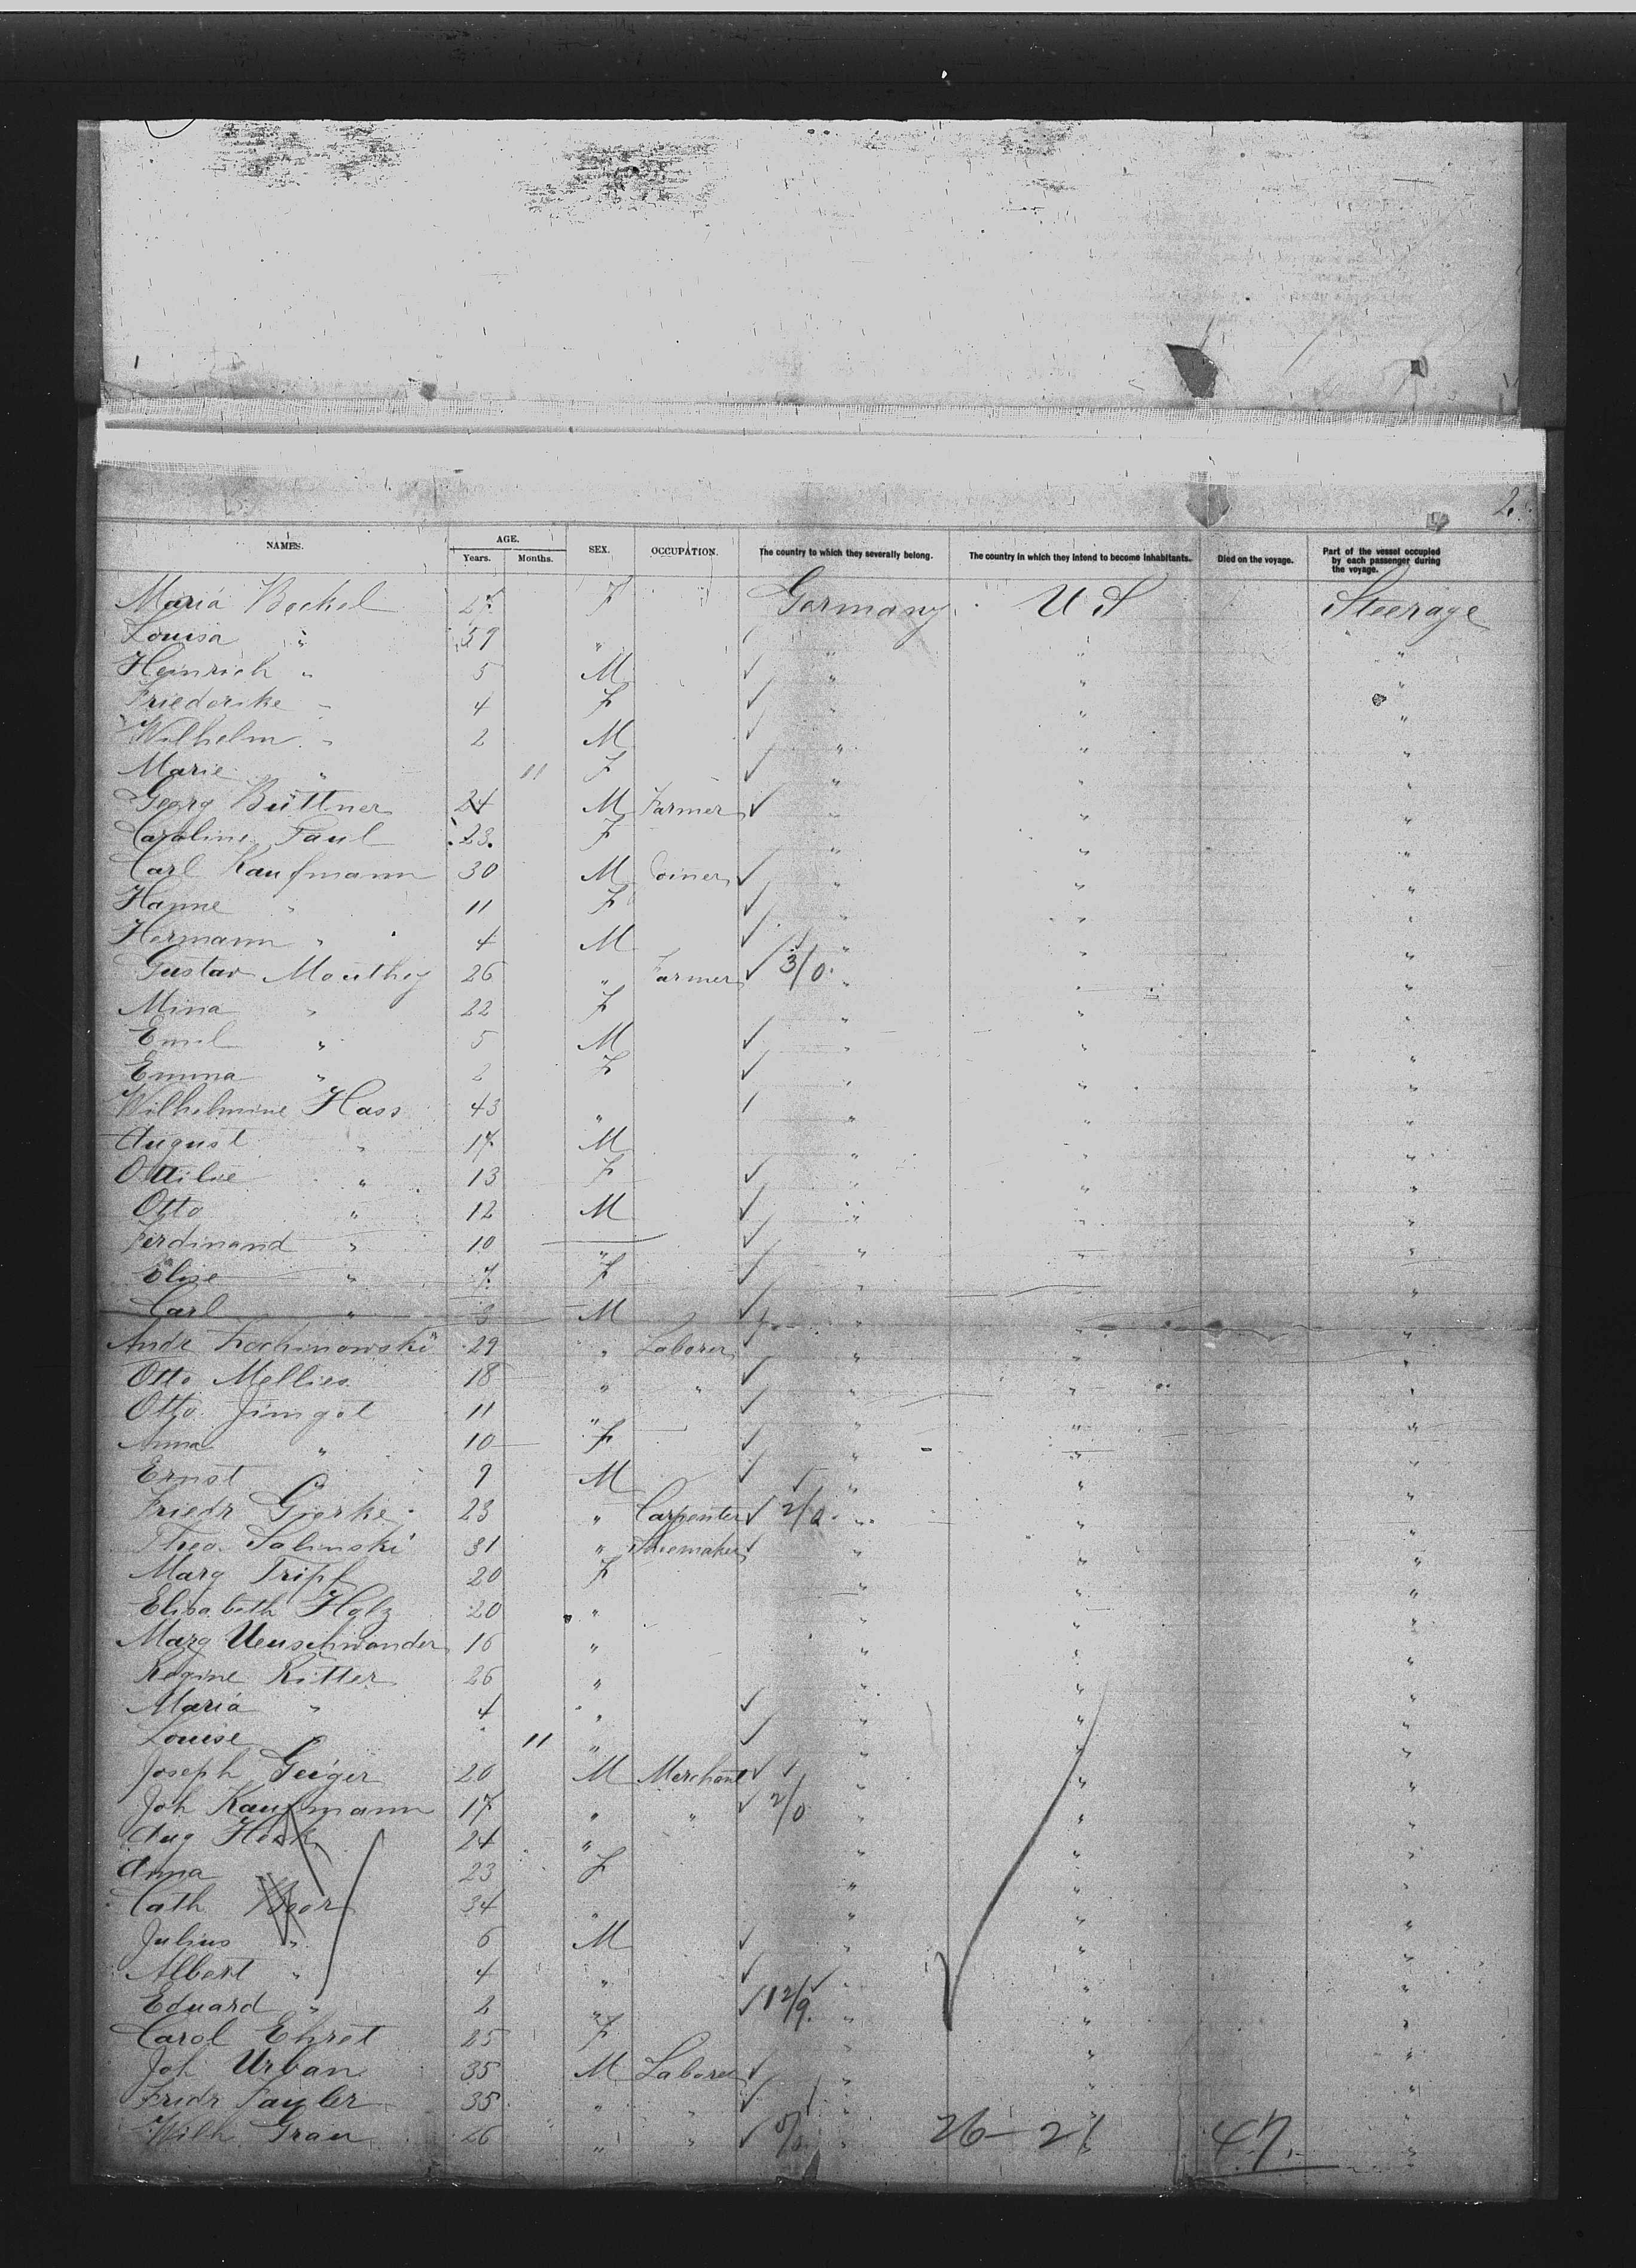 2.
NAMES. AGE. Years. Months. SEX. OCCUPATION. The country to which they severally belong. The country in which they intend to become inhabitants. Died on the voyage. Part of the vessel occupied by each passenger during the voyage.
Maria Bockel 27 F Germany U S Steerage
Louisa " 39 " " " "
Heinrich " 5 M " " "
Friederike " 4 F " " "
Wilhelm " 2 M " " "
Marie " 11 F " " "
Georg Büttner 24 M Farmer " " "
Caroline Paul 23 F " " "
Carl Kaufmann 30 M " " "
Hanne " 11 F " " "
Hermann " 4 M " " "
Gustav Mouthey 26 " Farmer 3/0 " " "
Mina " 22 F " " "
Emil " 5 M " " "
Emma " 2 F " " "
Wilhelmine Hass 43 " " " "
August " 17 M " " "
Ottilie " 13 F " " "
Otto " 12 M " " "
Ferdinand " 10 " " " "
Elise " 7 F " " "
Carl " 3 M " " "
Andr 29 " Laborer " " "
Otto Mellies 18 " " " " "
Otto 11 " " " "
Anna " 10 F " " "
Ernst " 9 M " " "
Friedr Gierke 23 " Carpenter 2/0 " " "
Theo. Salinski 31 " Shoemaker " " "
Marg Tripf 20 F " " "
Elisabeth Holz 20 " " " "
Marg Neuschwander 16 " " " "
Regine Ritter 26 " " " "
Maria " 4 " " " "
Louise " 11 " " " "
Joseph Geiger 20 M Merchant " " "
Joh Kaufmann 17 " " 2/0 " " "
Aug 24 " " " "
Anna 23 F " " "
Cath 34 " " " "
Julius " 6 M " " "
Albert " 4 " " " "
Eduard " 2 " 12/9 " " "
Carol Ehret 25 F " " "
Joh Urban 35 M Laborer " " "
Fridr 35 " " " " "
Wilh Grau 26 " " " " "
26 - 21 47